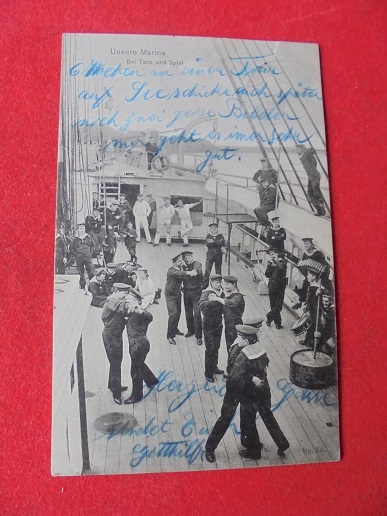 Unsere Marine
Bei Tanz und Spiel
6 Wochen an einer Tour
auf See schicke euch später
noch zwei Bilder
mir geht es
gut.
Herzl. Grüsse
sendet Euch
Gotthilf